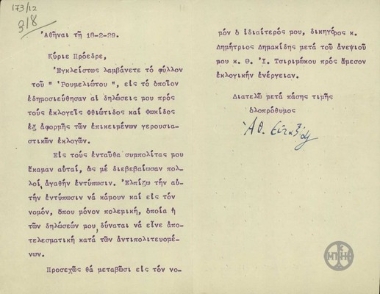 173/12
318
Ἀθῆναι τῇ 18-2-29.
Κύριε Πρόεδρε,
Ἐγκλείστως λαμβάνετε τό φύλλον
τοῦ " Ῥουμελιώτου", εἰς τό ὁποῖον
ἐδημοσιεύθησαν αἱ δηλώσεις μου πρός
τούς ἐκλογεῖς Φθιώτιδος καί Φωκίδος
ἐξ ἀφορμῆς τῶν ἐπικειμένων γερουσια-
στικῶν ἐκλογῶν.
Εἰς τούς ἐνταῦθα συμπολίτας μου
ἔκαμαν αὗται, ὡς μέ διεβεβαίωσαν πολ-
λοί, ἀγαθήν ἐντύπωσιν. Ἐλπίζω τήν αὐ-
τήν ἐντύπωσιν νά κάμουν καί εἰς τόν
νομόν, ὅπου μόνον πολεμική, ὁποία ἡ
τῶν δηλώσεών μου, δύναται νά εἶνε ἀπο-
τελεσματική κατά τῶν ἀντιπολιτευομέ-
νων.
Προσεχῶς θά μεταβῶσι εἰς τόν νο-
μόν ὁ ἰδιαίτερός μου, δικηγόρος κ.
Δημήτριος Δημακίδης μετά τοῦ ἀνεψιοῦ
μου κ. Θ. Ἰ. Τσιριμώκου πρός ἄμεσον
ἐκλογικήν ἐνέργειαν.
Διατελῶ μετά πάσης τιμῆς
ὁλοπρόθυμος
Ἀθ.